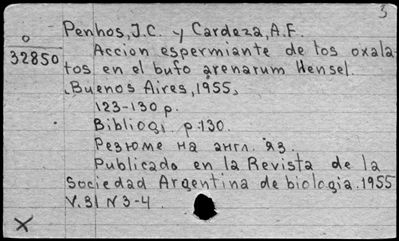 3
Penhos, J.C. y Cardeza, A.F.
o
32850
Accion espermiante de los oxala-
tos en el bufo arenarum Hensel.
Buenos Aires, 1955,
123-130 p.
Bibliogr. p.130.
Резюме на англ. яз.
Publicado en la Revista de la
Sociedad Argentina de biologia. 1955
V.31 N 3-4.
X